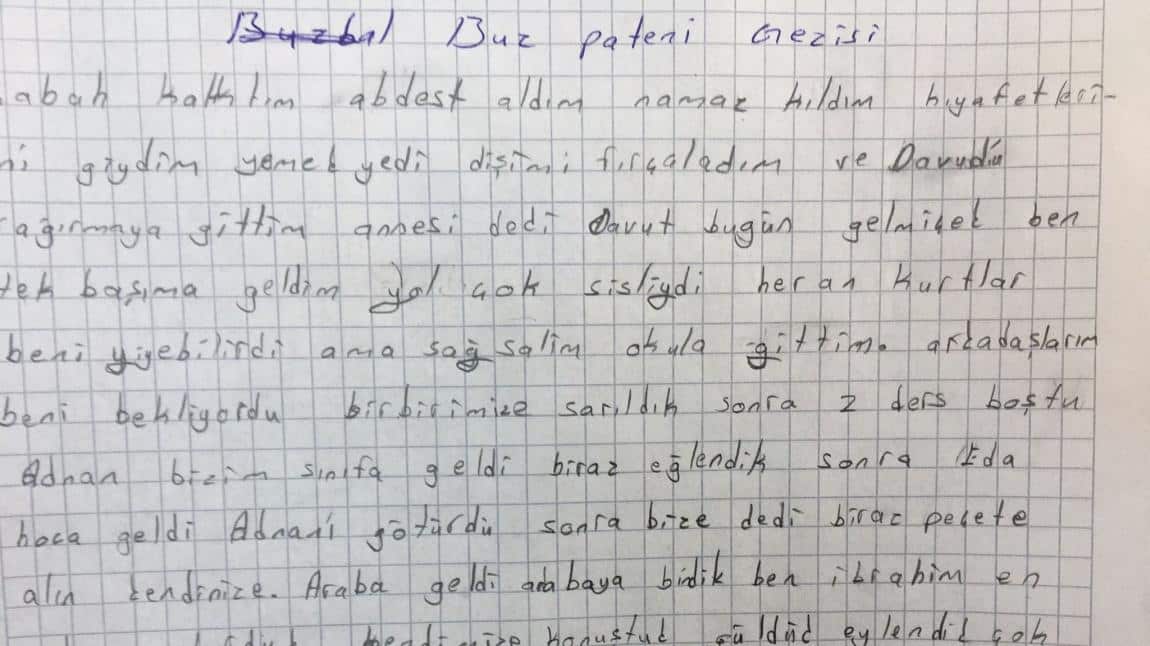 Buz pateni Gezisi
abah kalktım abdest aldım namaz kıldım kıyafetleri-
ni giydim yemek yedi dişimi fırçaladım ve Davudu
ağırmaya gittim annesi dedi Davut bugün gelmicek ben
tek başıma geldim yol çok sisliydi her an kurtlar
beni yiyebilirdi ama sağ salim okula gittim. arkadaşlarım
beni bekliyordu birbirimize sarıldık sonra 2 ders boştu
Adnan bizim sınıfa geldi biraz eğlendik sonra Eda
hoca geldi Adnanı götürdü sonra bize dedi biraz peçete
alın kendinize. Araba geldi arabaya bidik ben ibrahim en
konuştuk güldük eylendik çok